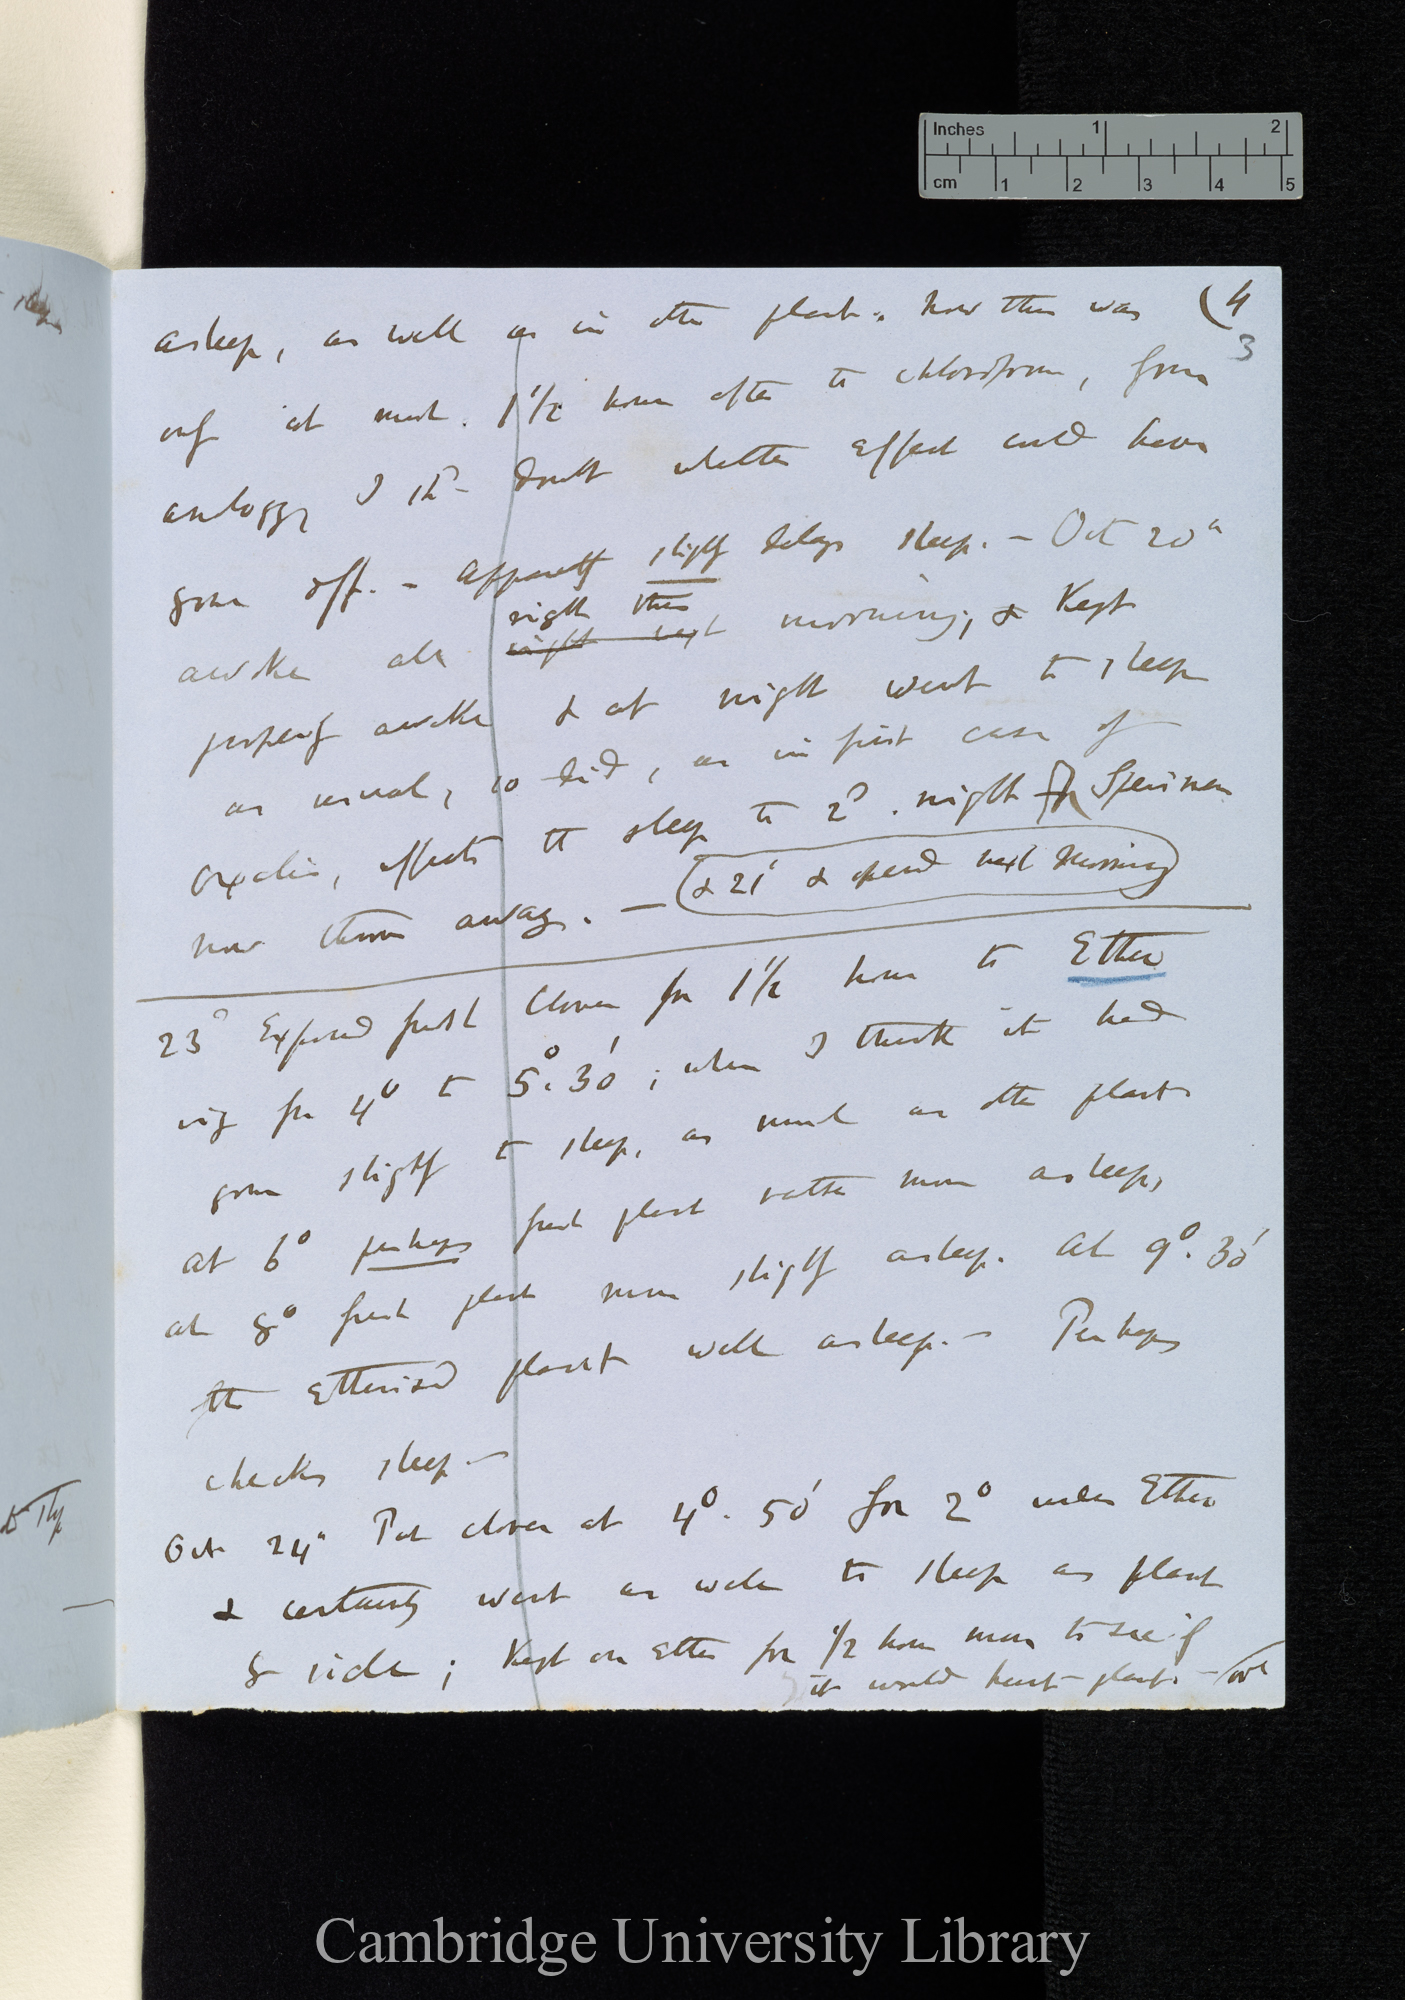 Inches 1 2
cm 1 2 3 4 5
(4
3
asleep, as well as in other plant. Now this was
only at most 1 1/2 hour after the chloroform, from
analogy I shd doubt whether effect could have
gone off. — Apparently slightly delays sleep. — Oct 20th
awoke all right this morning, & kept
night next
properly awake & at night went to sleep
as usual, so did, as in first case of
Oxalis, affects the sleep to 2d. night Specimen
now thrown away. — (& 21st & opened next morning)
23d Exposed fresh Clover for 1 1/2 hour to Ether
viz from 4° to 5°. 30'; when I think it had
gone slightly to sleep, as much as other plants
at 6° perhaps fresh plant rather more asleep,
at 8° fresh plant more slightly asleep. At 9°. 30'
the Etherised plant well asleep. — Perhaps
checks sleep —
Oct 24th Put clover at 4°. 50' for 2° under Ether
& certainly went as well to sleep as plant
by side; Kept on Ether for 1/2 hour more to see if
it would hurt plant. —
Cambridge University Library